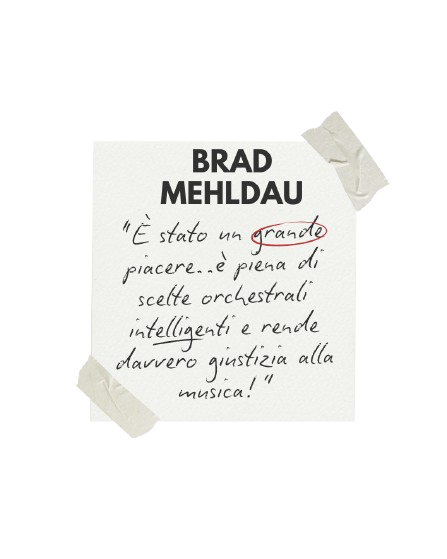 BRAD
MEHLDAU
"È stato un grande
piacere...è piena di
scelte orchestrali
intelligenti e rende
davvero giustizia alla
musica!"